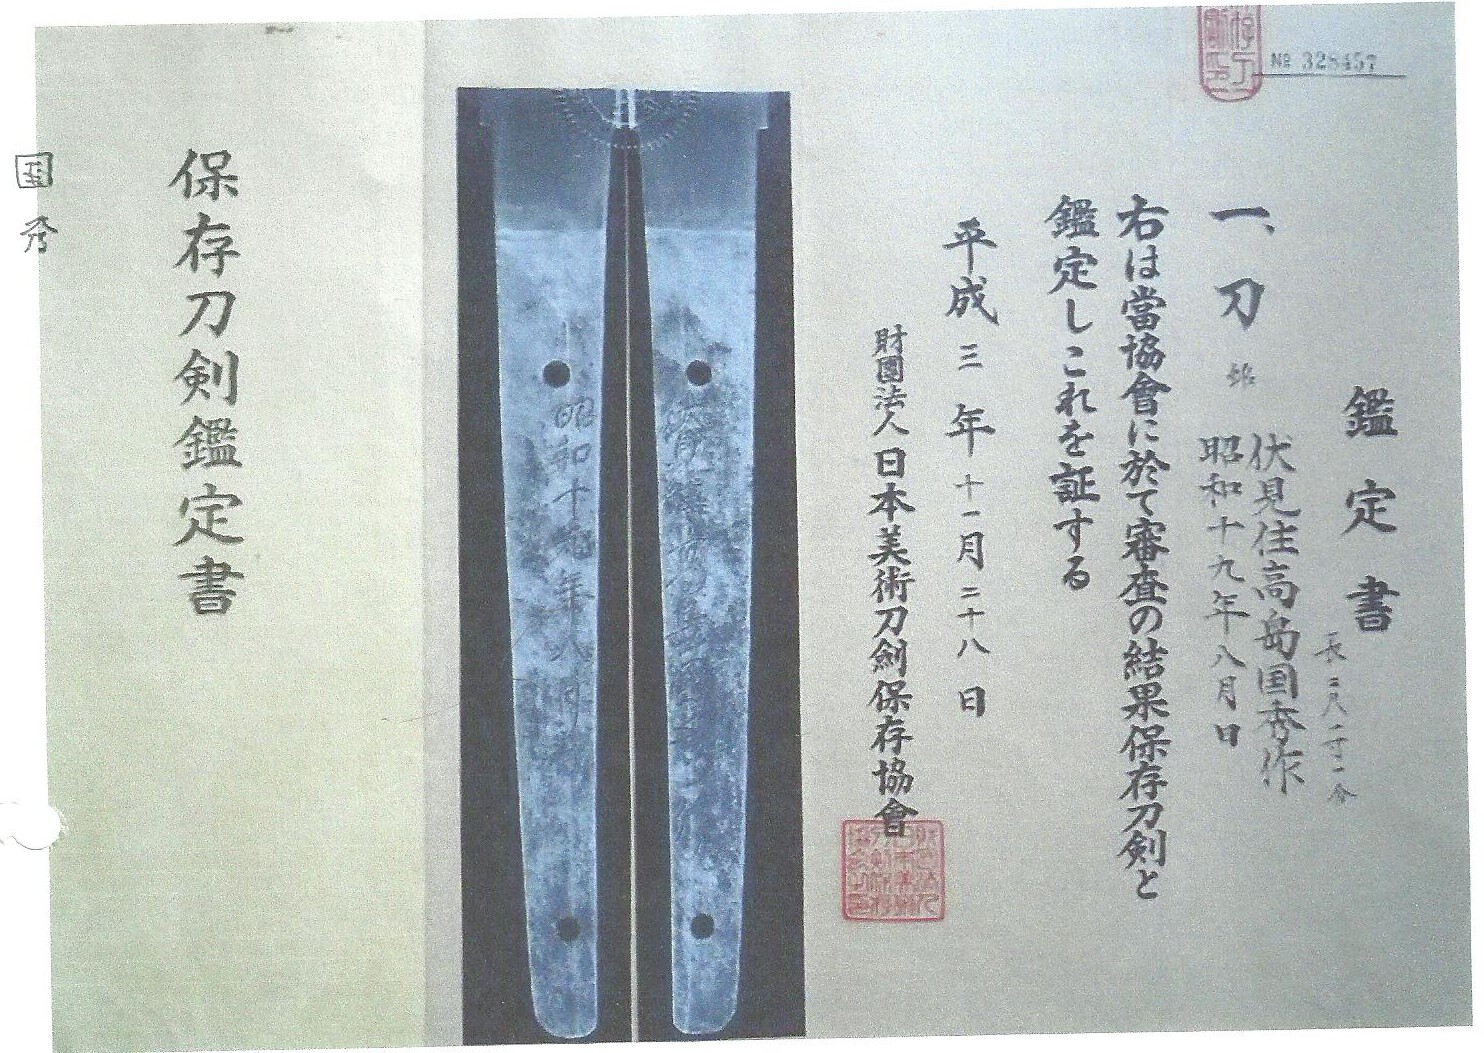 № 328457
鑑定書
一、刀 銘 伏見住高島国秀作
昭和十九年八月日
長二尺二寸一分
右は當協會に於て審査の結果保存刀剣と
鑑定しこれを証する
平成三年十一月二十八日
財團法人日本美術刀劍保存協會
昭和十九年八月日
保存刀剣鑑定書
国秀